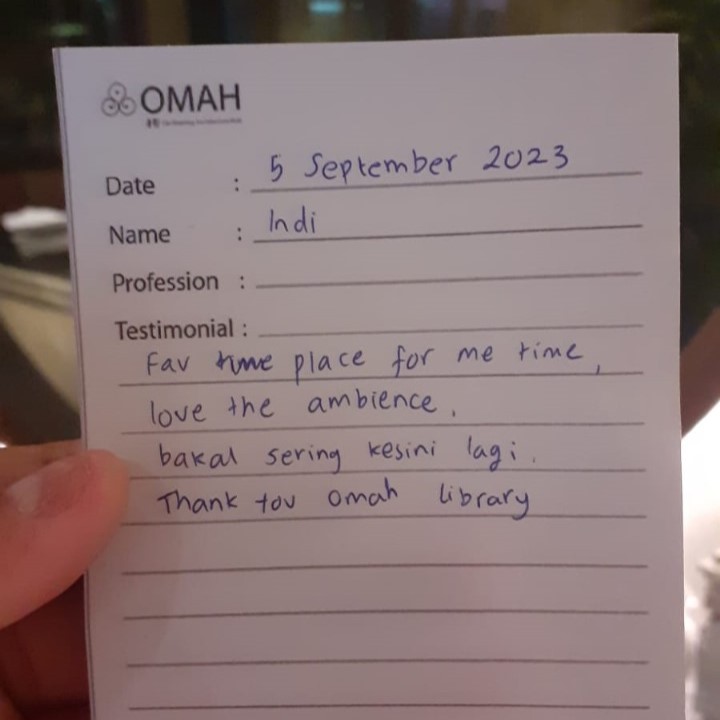 OMAH
Date : 5 September 2023
Name : Indi
Profession :
Testimonial :
Fav place for me time,
love the ambience.
bakal sering kesini lagi.
Thank tou Omah library